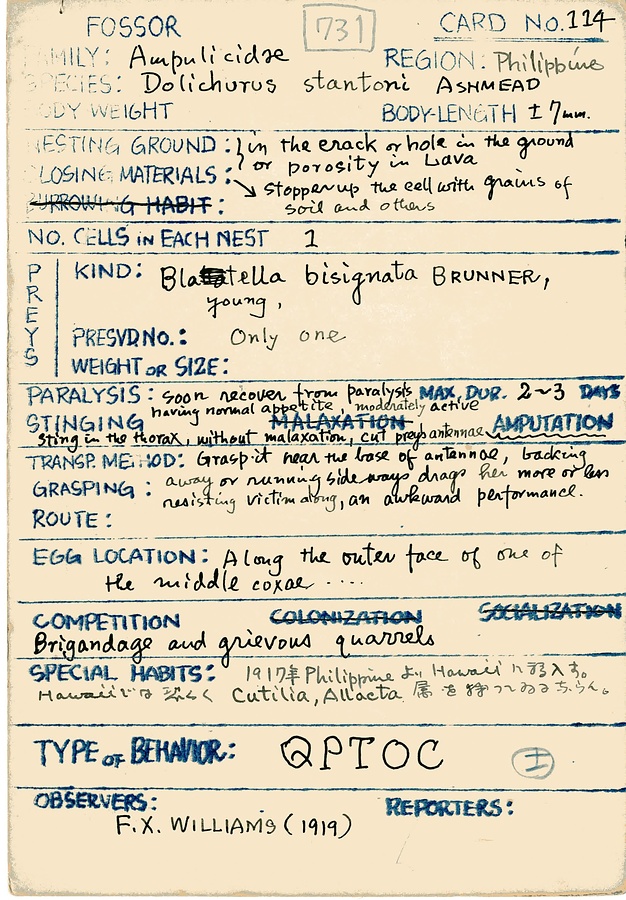 FOSSOR 731 CARD No. 114
FAMILY: Ampulicidae REGION: Philippine
SPECIES: Dolichurus stantoni ASHMEAD
BODY WEIGHT BODY-LENGTH ± 7mm.
NESTING GROUND: in the crack or hole in the ground
or porosity in Lava
CLOSING MATERIALS: stopper up the cell with grains of
BURROWING HABIT: soil and others
NO. CELLS in EACH NEST 1
PREYS
KIND: Blattella bisignata BRUNNER,
young,
PRESVD NO.: Only one
WEIGHT OR SIZE:
PARALYSIS: soon recover from paralysis MAX. DUR. 2~3 DAYS
having normal appetite, moderately active
STINGING MALAXATION AMPUTATION
sting in the thorax, without malaxation, cut preys antennae
TRANSP. METHOD: Grasp it near the base of antennae, backing
GRASPING: away or running sideways drags her more or less
resisting victim along, an awkward performance.
ROUTE:
EGG LOCATION: Along the outer face of one of
the middle coxae ....
COMPETITION COLONIZATION SOCIALIZATION
Brigandage and grievous quarrels
SPECIAL HABITS: 1917年 Philippine より Hawaii に移入す。
Hawaiiでは 恐らく Cutilia, Allacta 属を狩つてゐるらん。
TYPE OF BEHAVIOR: QPTOC ±
OBSERVERS: REPORTERS:
F.X. WILLIAMS (1919)